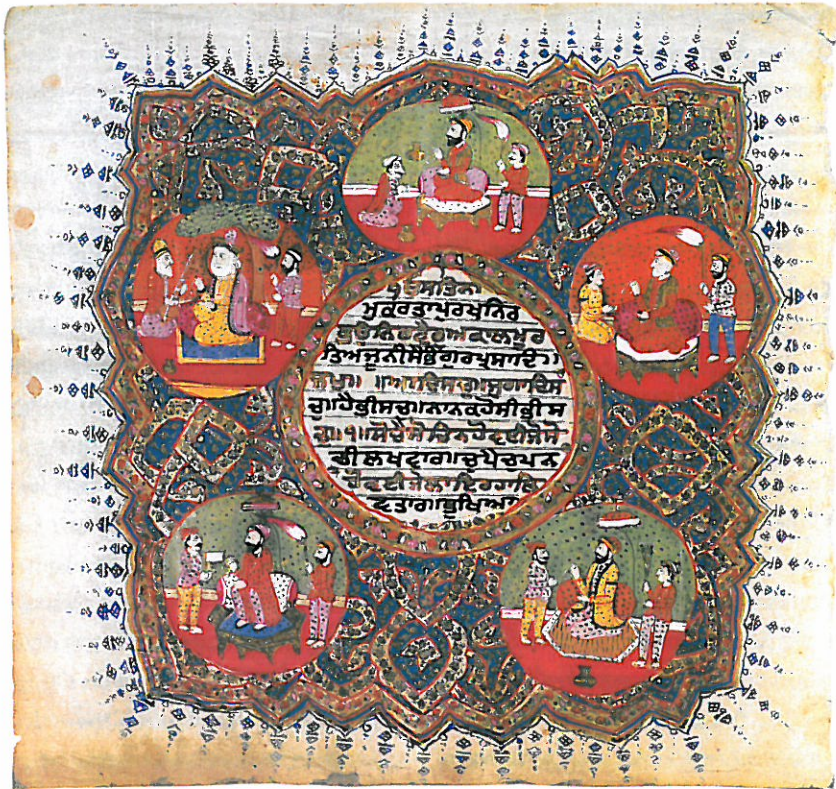 ੴਸਤਿਨਾ
ਮੁਕਰਤਾਪੁਰਖੁਨਿਰ
ਭਉਨਿਰਵੈਰੁਅਕਾਲਮੂਰ
ਤਿਅਜੂਨੀਸੈਭੰਗੁਰਪ੍ਰਸਾਦਿ॥
ਜਪੁ॥ ॥ਆਦਿਸਚੁਜੁਗਾਦਿਸ
ਚੁ॥ਹੈਭੀਸਚੁ॥ਨਾਨਕਹੋਸੀਭੀਸ
ਚੁ॥੧॥ਸੋਚੈਸੋਚਿਨਹੋਵਈਜੇਸੋ
ਚੀਲਖਵਾਰ॥ਚੁਪੈਚੁਪਨ
ਹੋਵਈਜੇਲਾਇਰਹਾਲਿ
ਵਤਾਰ॥ਭੁਖਿਆ